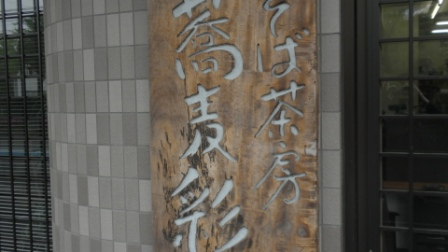 そば茶房
蕎麦彩